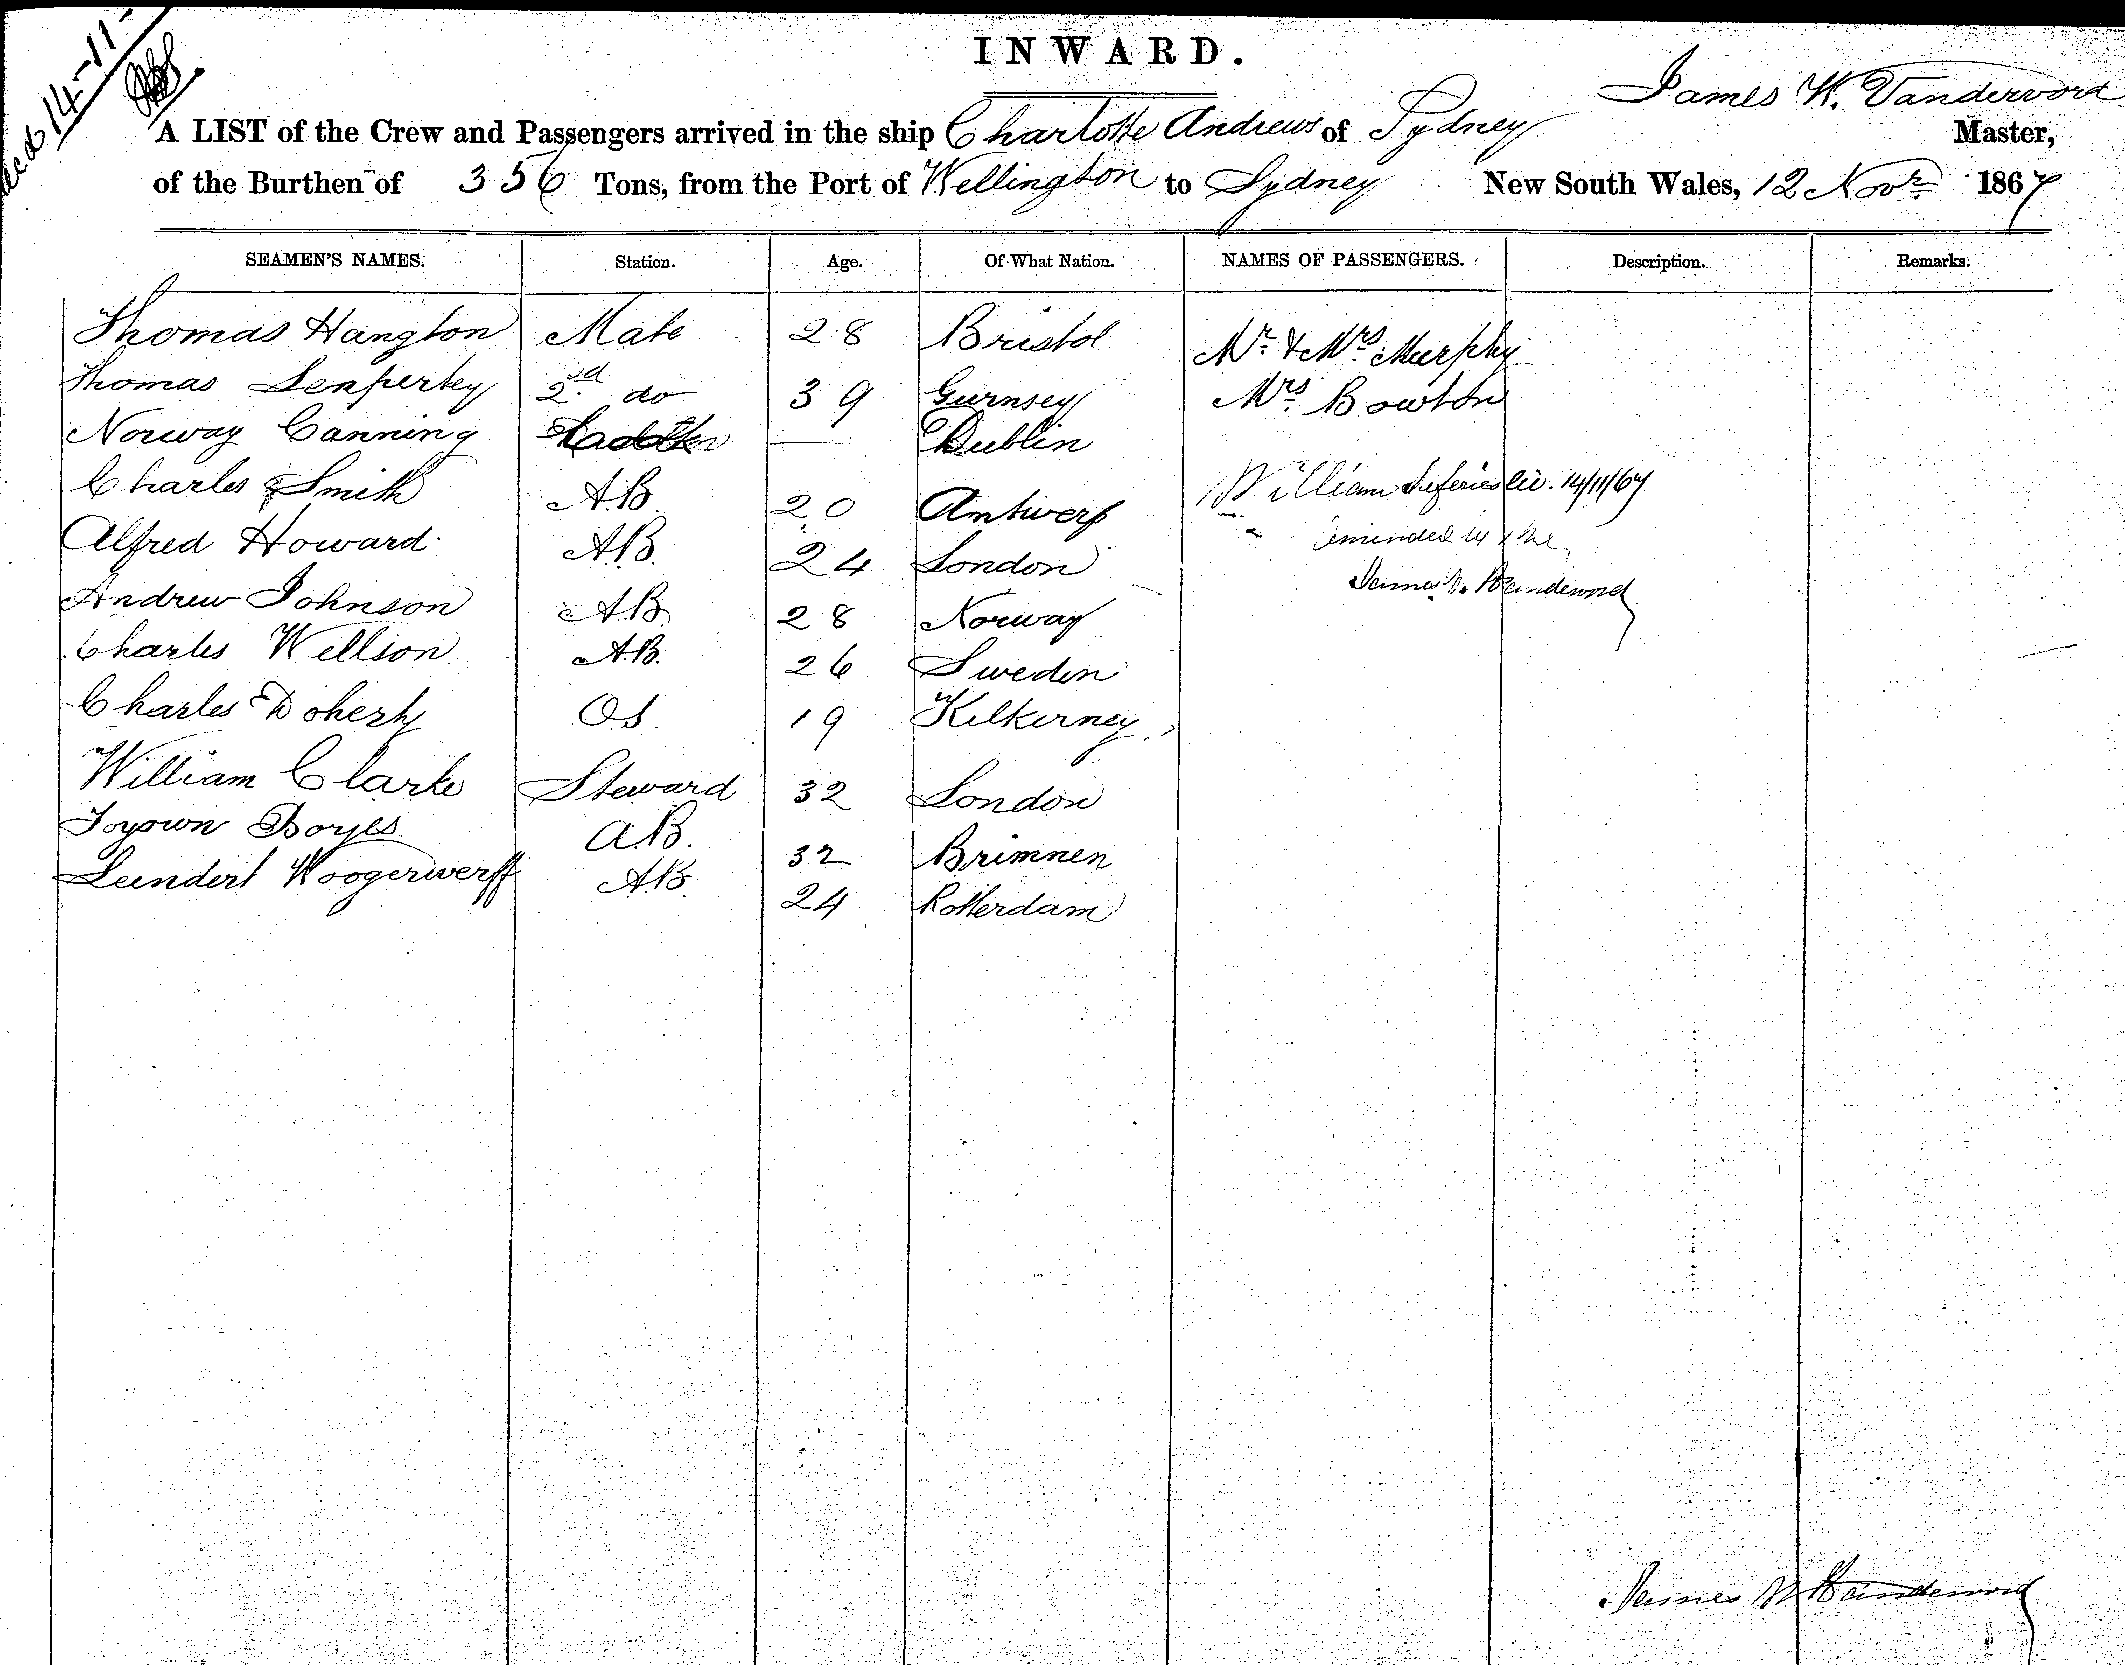 14-11
INWARD.
James W. Vandervord
A LIST of the Crew and Passengers arrived in the ship Charlotte Andrews of Sydney Master,
of the Burthen of 356 Tons, from the Port of Wellington to Sydney New South Wales, 12 Novr 1867
SEAMEN'S NAMES. Station. Age. Of What Nation. NAMES OF PASSENGERS. Description. Remarks.
Thomas Hangton Mate 28 Bristol Mr. & Mrs. Murphy
Thomas 2nd do 39 Gurnsey Mrs. Bowton
Norway Canning — Dublin
Charles Smith A.B. 20 Antwerp William 14/11/67
Alfred Howard A.B. 24 London
Andrew Johnson A.B. 28 Norway James W. Vandervord
Charles Wellson A.B. 26 Sweden
Charles Doherty OS. 19 Kilkerney
William Clarke Steward 32 London
Boyes A.B. 32 Brimnen
Leendert Hoogerwerff A.B. 24 Rotterdam
James W Vandervord